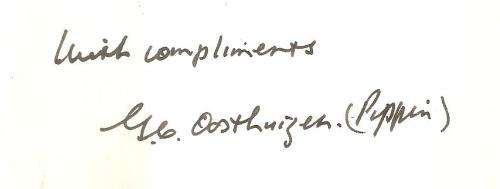 With compliments
G.C. Oosthuizen. (Pippin)